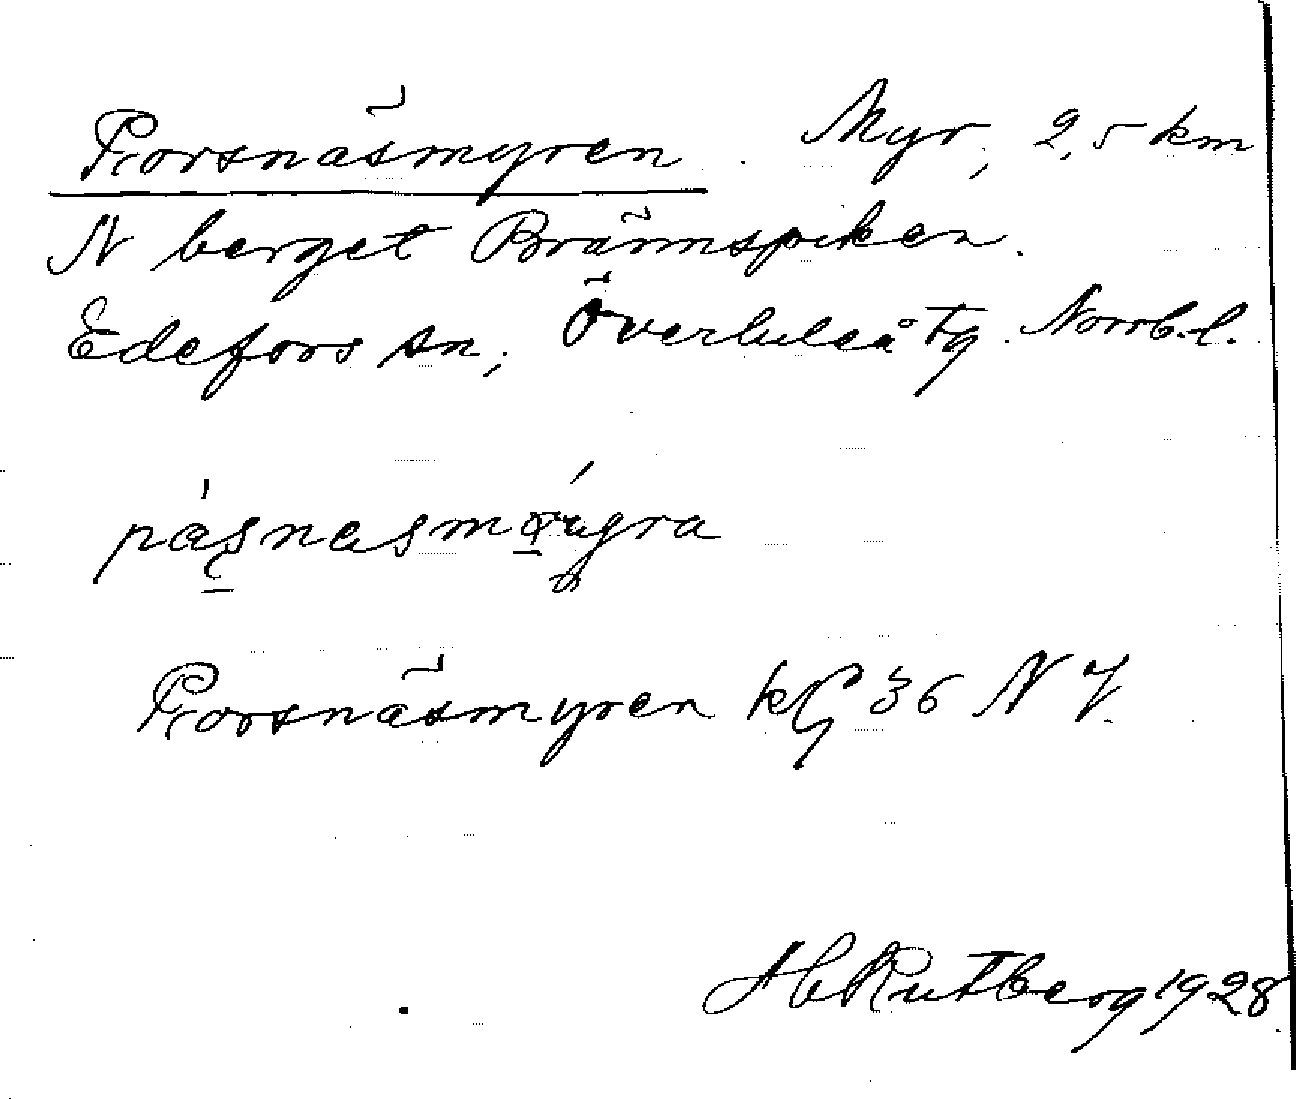 Porsnäsmyren. Myr, 2,5 km
N berget Brännspiken.
Edefors sn, Överluleå tg. Norrb.l.
Porsnäsmyren kG 36 N V.
H Rutberg 1928